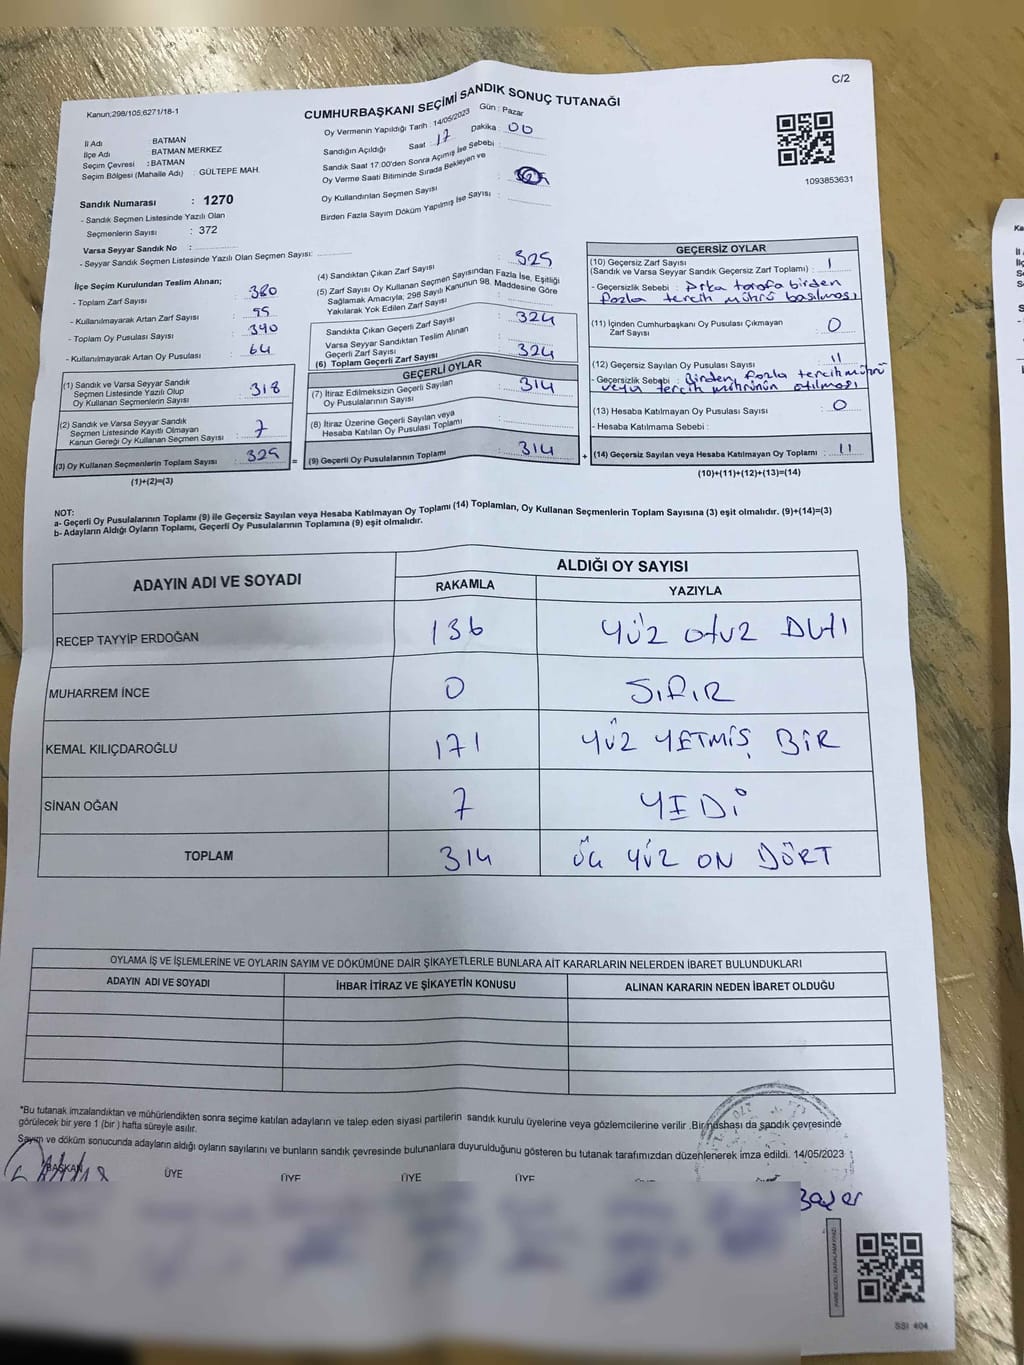 C/2
Kanun;298/105;6271/18-1
CUMHURBAŞKANI SEÇİMİ SANDIK SONUÇ TUTANAĞI
İl Adı BATMAN
İlçe Adı BATMAN MERKEZ
Seçim Çevresi : BATMAN
Seçim Bölgesi (Mahalle Adı) : GÜLTEPE MAH.
Sandık Numarası : 1270
- Sandık Seçmen Listesinde Yazılı Olan
Seçmenlerin Sayısı : 372
Varsa Seyyar Sandık No :
- Seyyar Sandık Seçmen Listesinde Yazılı Olan Seçmen Sayısı:
Oy Vermenin Yapıldığı Tarih : 14/05/2023 Gün : Pazar
Sandığın Açıldığı Saat : 17 Dakika : 00
Sandık Saat 17:00'den Sonra Açımış İse Sebebi :
Oy Verme Saati Bitiminde Sırada Bekleyen ve
Oy Kullandırılan Seçmen Sayısı :
Birden Fazla Sayım Döküm Yapılmış İse Sayısı :
1093853631
İlçe Seçim Kurulundan Teslim Alınan;
- Toplam Zarf Sayısı : 380
- Kullanılmayarak Artan Zarf Sayısı : 55
- Toplam Oy Pusulası Sayısı : 390
- Kullanılmayarak Artan Oy Pusulası : 64
(1) Sandık ve Varsa Seyyar Sandık
Seçmen Listesinde Yazılı Olup
Oy Kullanan Seçmenlerin Sayısı : 318
(2) Sandık ve Varsa Seyyar Sandık
Seçmen Listesinde Kayıtlı Olmayan
Kanun Gereği Oy Kullanan Seçmen Sayısı : 7
(3) Oy Kullanan Seçmenlerin Toplam Sayısı : 325
(1)+(2)=(3)
(4) Sandıktan Çıkan Zarf Sayısı : 325
(5) Zarf Sayısı Oy Kullanan Seçmen Sayısından Fazla İse, Eşitliği
Sağlamak Amacıyla, 298 Sayılı Kanunun 98. Maddesine Göre
Yakılarak Yok Edilen Zarf Sayısı :
Sandıkta Çıkan Geçerli Zarf Sayısı : 324
Varsa Seyyar Sandıktan Teslim Alınan
Geçerli Zarf Sayısı :
(6) Toplam Geçerli Zarf Sayısı : 324
GEÇERLİ OYLAR
(7) İtiraz Edilmeksizin Geçerli Sayılan
Oy Pusulalarının Sayısı : 314
(8) İtiraz Üzerine Geçerli Sayılan veya
Hesaba Katılan Oy Pusulası Toplamı :
= (9) Geçerli Oy Pusulalarının Toplamı : 314
GEÇERSİZ OYLAR
(10) Geçersiz Zarf Sayısı
(Sandık ve Varsa Seyyar Sandık Geçersiz Zarf Toplamı) : 1
- Geçersizlik Sebebi : Arka tarafa birden
fazla tercih mührü basılması
(11) İçinden Cumhurbaşkanı Oy Pusulası Çıkmayan
Zarf Sayısı : 0
(12) Geçersiz Sayılan Oy Pusulası Sayısı : 11
- Geçersizlik Sebebi : Birden fazla tercih mührü
veya tercih mührünün atılması
(13) Hesaba Katılmayan Oy Pusulası Sayısı : 0
- Hesaba Katılmama Sebebi :
+ (14) Geçersiz Sayılan veya Hesaba Katılmayan Oy Toplamı : 11
(10)+(11)+(12)+(13)=(14)
NOT:
a- Geçerli Oy Pusulalarının Toplamı (9) ile Geçersiz Sayılan veya Hesaba Katılmayan Oy Toplamı (14) Toplamları, Oy Kullanan Seçmenlerin Toplam Sayısına (3) eşit olmalıdır. (9)+(14)=(3)
b- Adayların Aldığı Oyların Toplamı, Geçerli Oy Pusulalarının Toplamına (9) eşit olmalıdır.
ADAYIN ADI VE SOYADI
ALDIĞI OY SAYISI
RAKAMLA YAZIYLA
RECEP TAYYİP ERDOĞAN 136 YÜZ OTUZ ALTI
MUHARREM İNCE 0 SIFIR
KEMAL KILIÇDAROĞLU 171 YÜZ YETMİŞ BİR
SİNAN OĞAN 7 YEDİ
TOPLAM 314 ÜÇ YÜZ ON DÖRT
OYLAMA İŞ VE İŞLEMLERİNE VE OYLARIN SAYIM VE DÖKÜMÜNE DAİR ŞİKAYETLERLE BUNLARA AİT KARARLARIN NELERDEN İBARET BULUNDUKLARI
ADAYIN ADI VE SOYADI İHBAR İTİRAZ VE ŞİKAYETİN KONUSU ALINAN KARARIN NEDEN İBARET OLDUĞU
*Bu tutanak imzalandıktan ve mühürlendikten sonra seçime katılan adayların ve talep eden siyasi partilerin sandık kurulu üyelerine veya gözlemcilerine verilir .Bir nüshası da sandık çevresinde
görülecek bir yere 1 (bir ) hafta süreyle asılır.
Sayım ve döküm sonucunda adayların aldığı oyların sayılarını ve bunların sandık çevresinde bulunanlara duyurulduğunu gösteren bu tutanak tarafımızdan düzenlenerek imza edildi. 14/05/2023
BAŞKAN ÜYE ÜYE ÜYE ÜYE
SSI 404